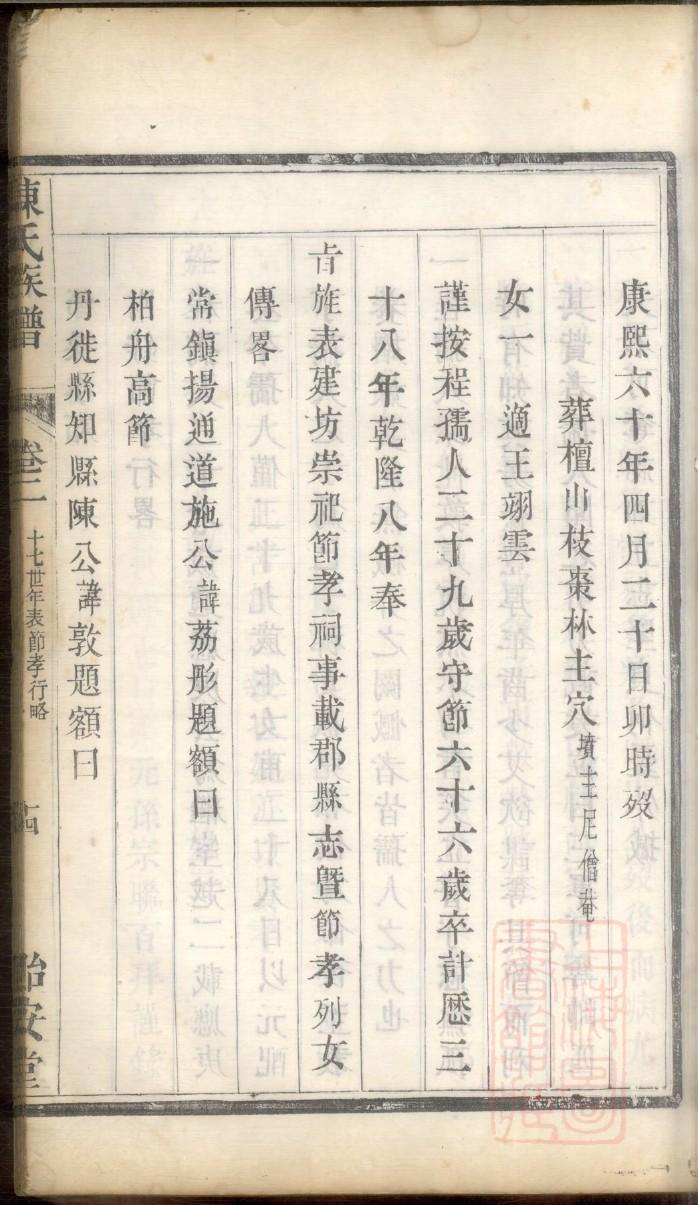 康熙六十年四月二十日卯時歿
葬檀山枝棗林主穴墳主尼僧菴
女一適王翊雲
謹按程孺人二十九歲守節六十六歲卒計歷三
十八年乾隆八年奉
旨旌表建坊崇祀節孝祠事載郡縣志曁節孝列女
傳畧
常鎭揚通道施公諱茘彤題額曰
柏舟高節
丹徒縣知縣陳公諱敦題額曰
陳氏族譜
卷二
十七世年表節孝行略
十四
怡安堂